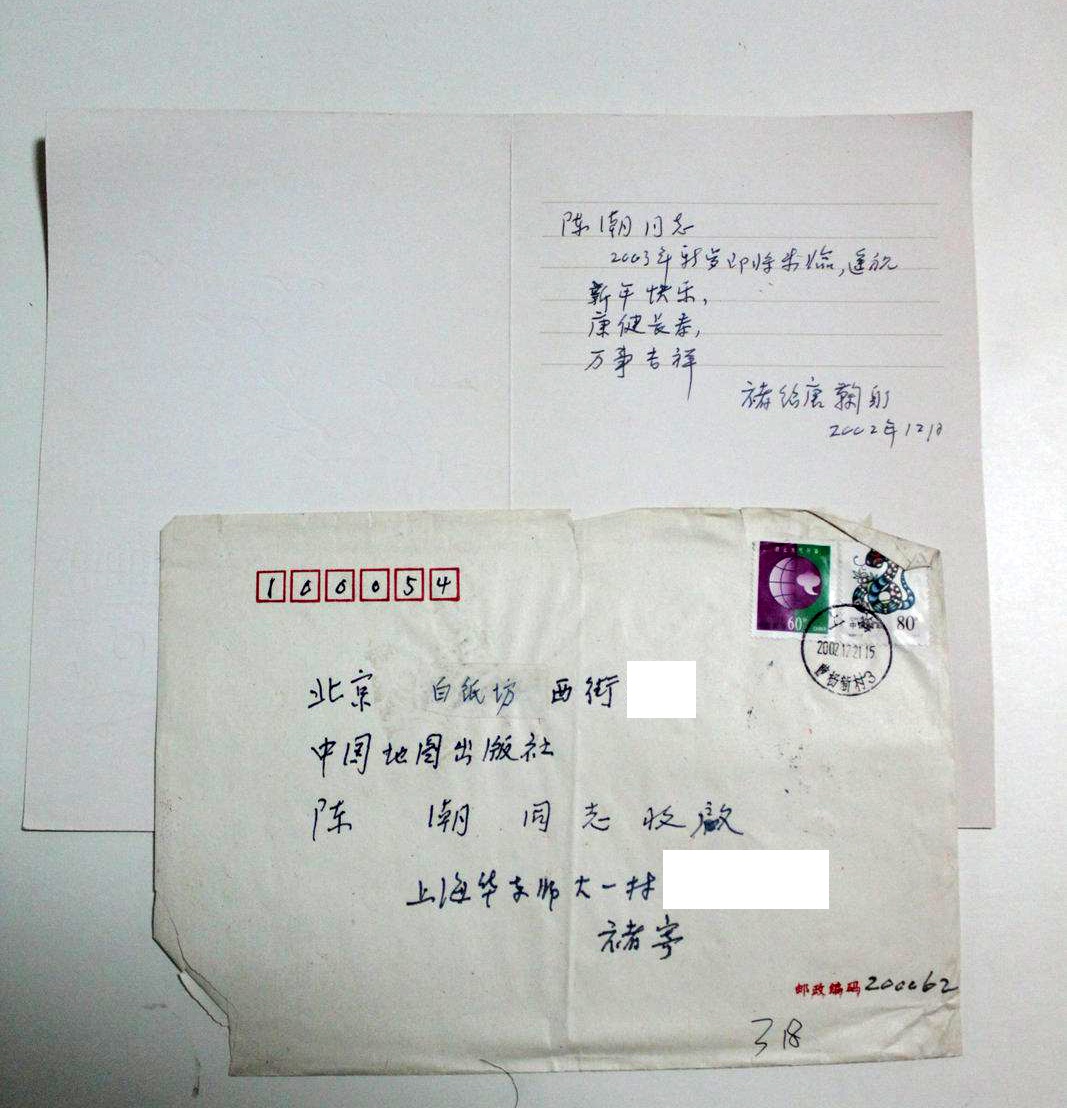 陈潮同志
2003年新岁即将来临,遥祝
新年快乐,
康健长泰,
万事吉祥
褚绍唐鞠躬
2002年12月
100054
60分
80分
2002.12.21.15
新村3
北京 白纸坊西街
中国地图出版社
陈 潮 同志 收启
上海华东师大一村
褚寄
邮政编码200062
318